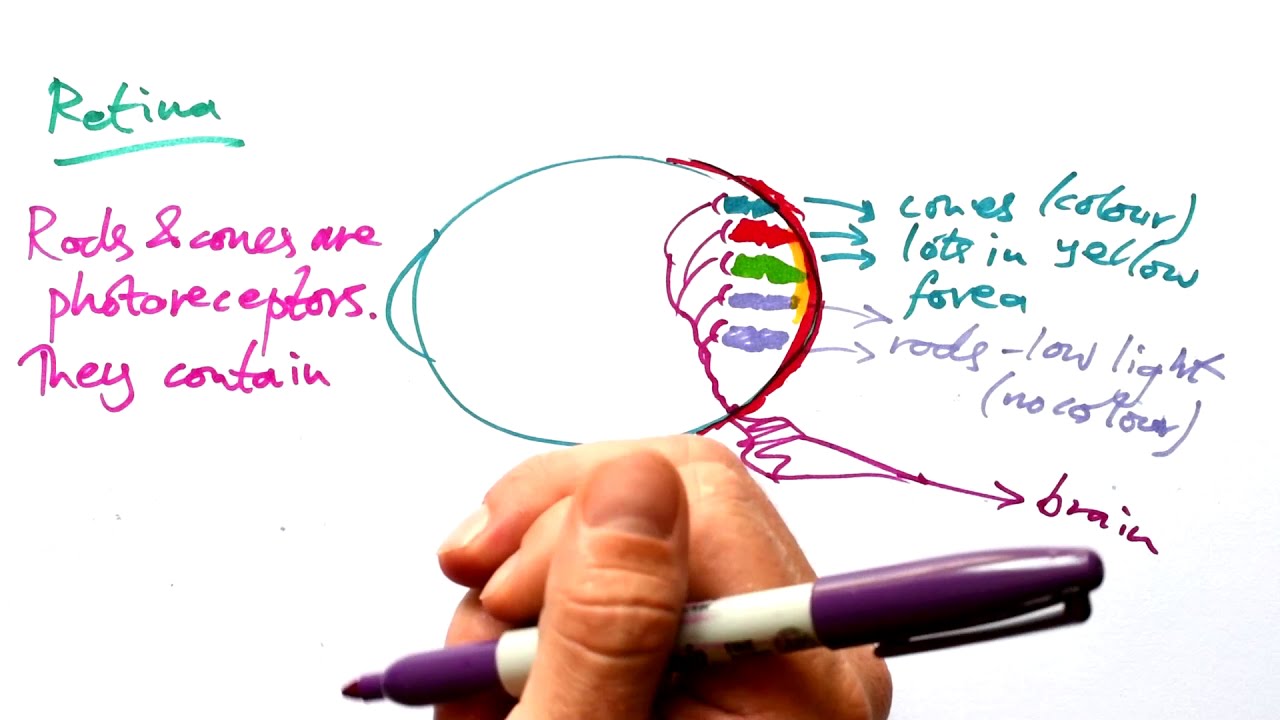 Retina
Rods & cones are
photoreceptors.
They contain
cones (colour)
lots in yellow
fovea
rods - low light
(no colour)
brain